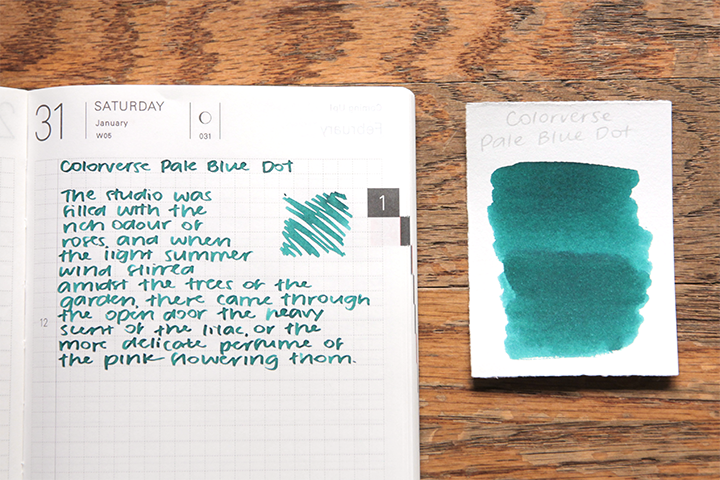 31
SATURDAY
January
W05
031
Colorverse Pale Blue Dot
The studio was
filled with the
rich odour of
roses, and when
the light summer
wind stirred
amidst the trees of the
garden, there came through
the open door the heavy
scent of the lilac, or the
more delicate perfume of
the pink-flowering thorn.
12
1
Colorverse
Pale Blue Dot